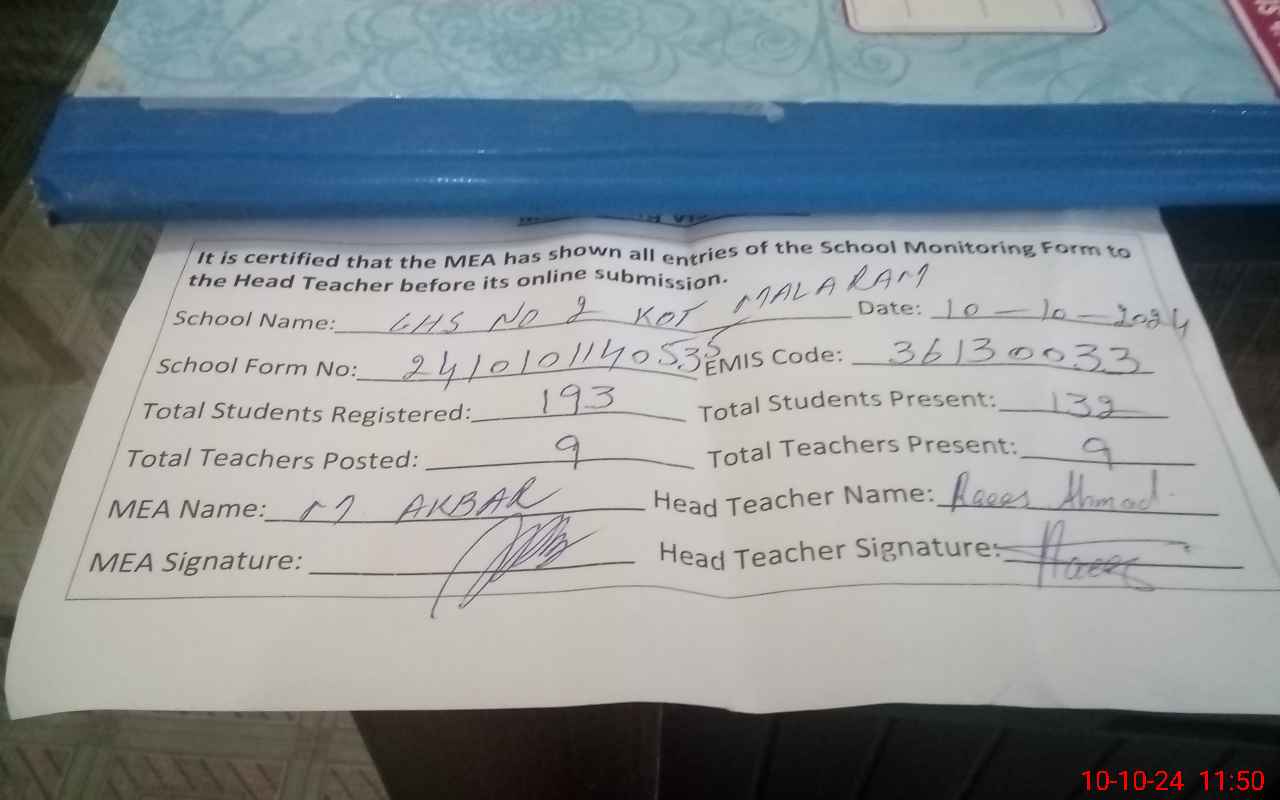 It is certified that the MEA has shown all entries of the School Monitoring Form to
the Head Teacher before its online submission.
School Name: GHS NO 2 KOT MALARAM Date: 10-10-2024
School Form No: 241010114053535 EMIS Code: 36130033
Total Students Registered: 193 Total Students Present: 132
Total Teachers Posted: 9 Total Teachers Present: 9
MEA Name: M AKBAR Head Teacher Name: Raees Ahmad
MEA Signature: Head Teacher Signature: Raees
10-10-24 11:50